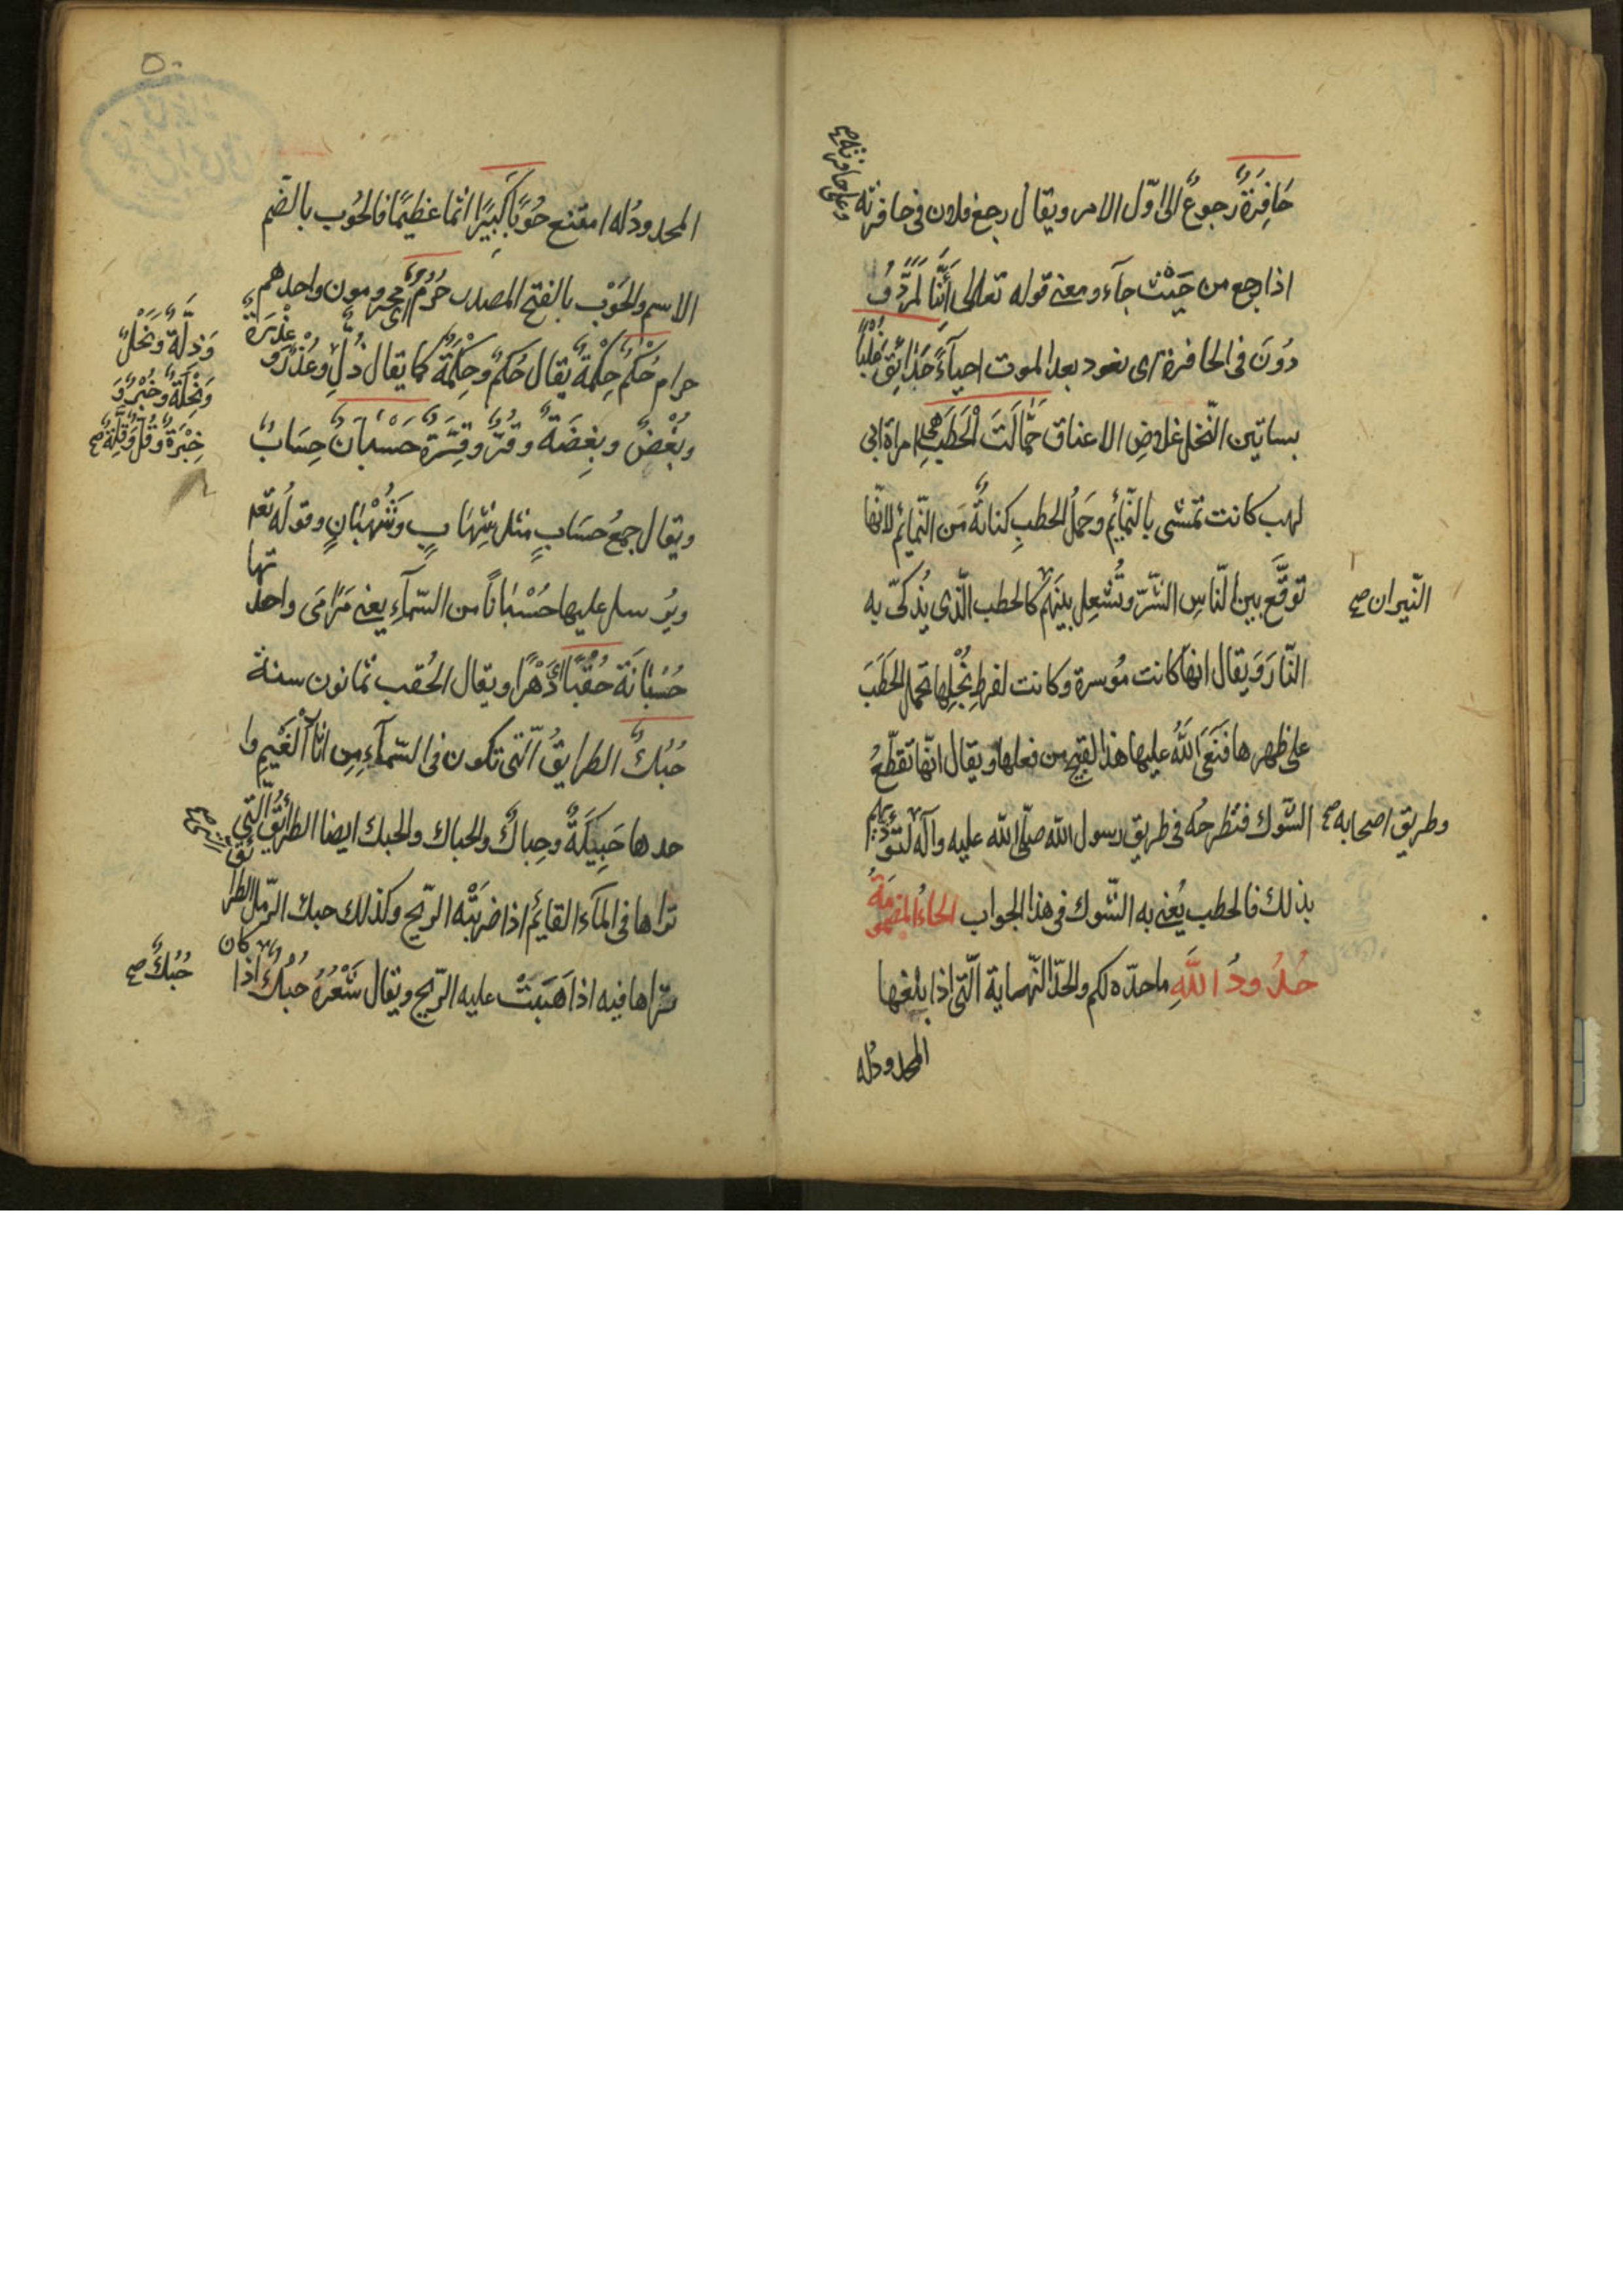 حَافِرَةٌ رجوعٌ الى اوّل الامر ويقال رجع فلان فى حافرته
وعلى حافرته صح
اذا رجع من حَيْث جآء ومعنى قوله تعالى أَئِنَّا لَمَرْدُو
دُونَ فى الحافرة اى نعود بعد الموت احيآءً حَدَائِقَ غُلْبًا
بساتين النّخل غلاض الاعناق حَمَّالَتَ الْحَطَبِ هى امراة ابى
لهب كانت تمشى بالنّمايم وحَملُ الحطبِ كنايةٌ من النّمايم لانّها
توقَّع بين النّاسِ الشّرّ وتُشعِل بينَهم كالحطب الّذى يُذكّى به
النّيران صح
النّارَ وَيقال انها كانت مُوسرة وكانت لفرطِ بُخْلِها تحمل الحَطَبَ
على ظهرها فنَعَى اللهُ عليها هذا القبيح من فعلها ويقال انّها تقطّعُ
الشّوك فتطرحُه فى طريق رسول الله صلّى الله عليه وآله لتؤذيهم
وطريق اصحابه صح
بذلك فالحطب يُعنى به الشّوك فى هذا الجواب الحاءُ المضمومَةُ
حُدُودُ اللَّهِ ما حدّه لكم والحدّ النّهاية الّتى اذا بلغها
المحدودُله
٥٠
المحدودُله امتنع حُوبًا كَبِيرًا اثما عَظيمًا فالحُوب بالضّم
الاسم والحَوْب بالفتح المصدر حُرُمٌ اى محرومون واحدهم
حرام حُكْمٌ حِكْمَةٌ يقال حُكمٌ وحِكْمَةٌ كما يقال ذُلّ وعُذْرٌ و عِذْرَةٌ
وَذِلَّةٌ وَنُحْلٌ
وَنِحْلَةٌ وخُبْرٌ وَ
خِبْرَةٌ وقُلٌّ وَقِلَّةٌ صح
وبُغْضٌ وبِغضَةٌ وقُرٌّ وقِرَّةٌ حُسْبَانٌ حِسَابٌ
ويقال جمعُ حسَابٍ مثل شِهَابٍ وَشُهْبَانٍ وقولُه تعـ
ويُرسل عليها حُسْبَانًا من السّمآءِ يعنى مَرَامَى واحدتها
حُسْبَانَة حُقُبًا اى دَهْرًا ويقال الحُقب ثمانون سنة
حُبُكٌ الطرايقُ الّتى تكون فى السّمآءِ مِن اثآرِ الْغَيْمِ وا
حدها حَبِيكَةٌ وحِباكٌ والحباك والحبك ايضا الطرائِقُ الّتى
تراها فى المآء القايم اذا ضربَتْه الرّيح وكذلك حبك الرّمل الطرائق
تراها فيه اذا هَبّتْ عليه الرّيح ويقال شَعْرُهُ حُبُكٌ اذا كان
حُبُكٌ صح